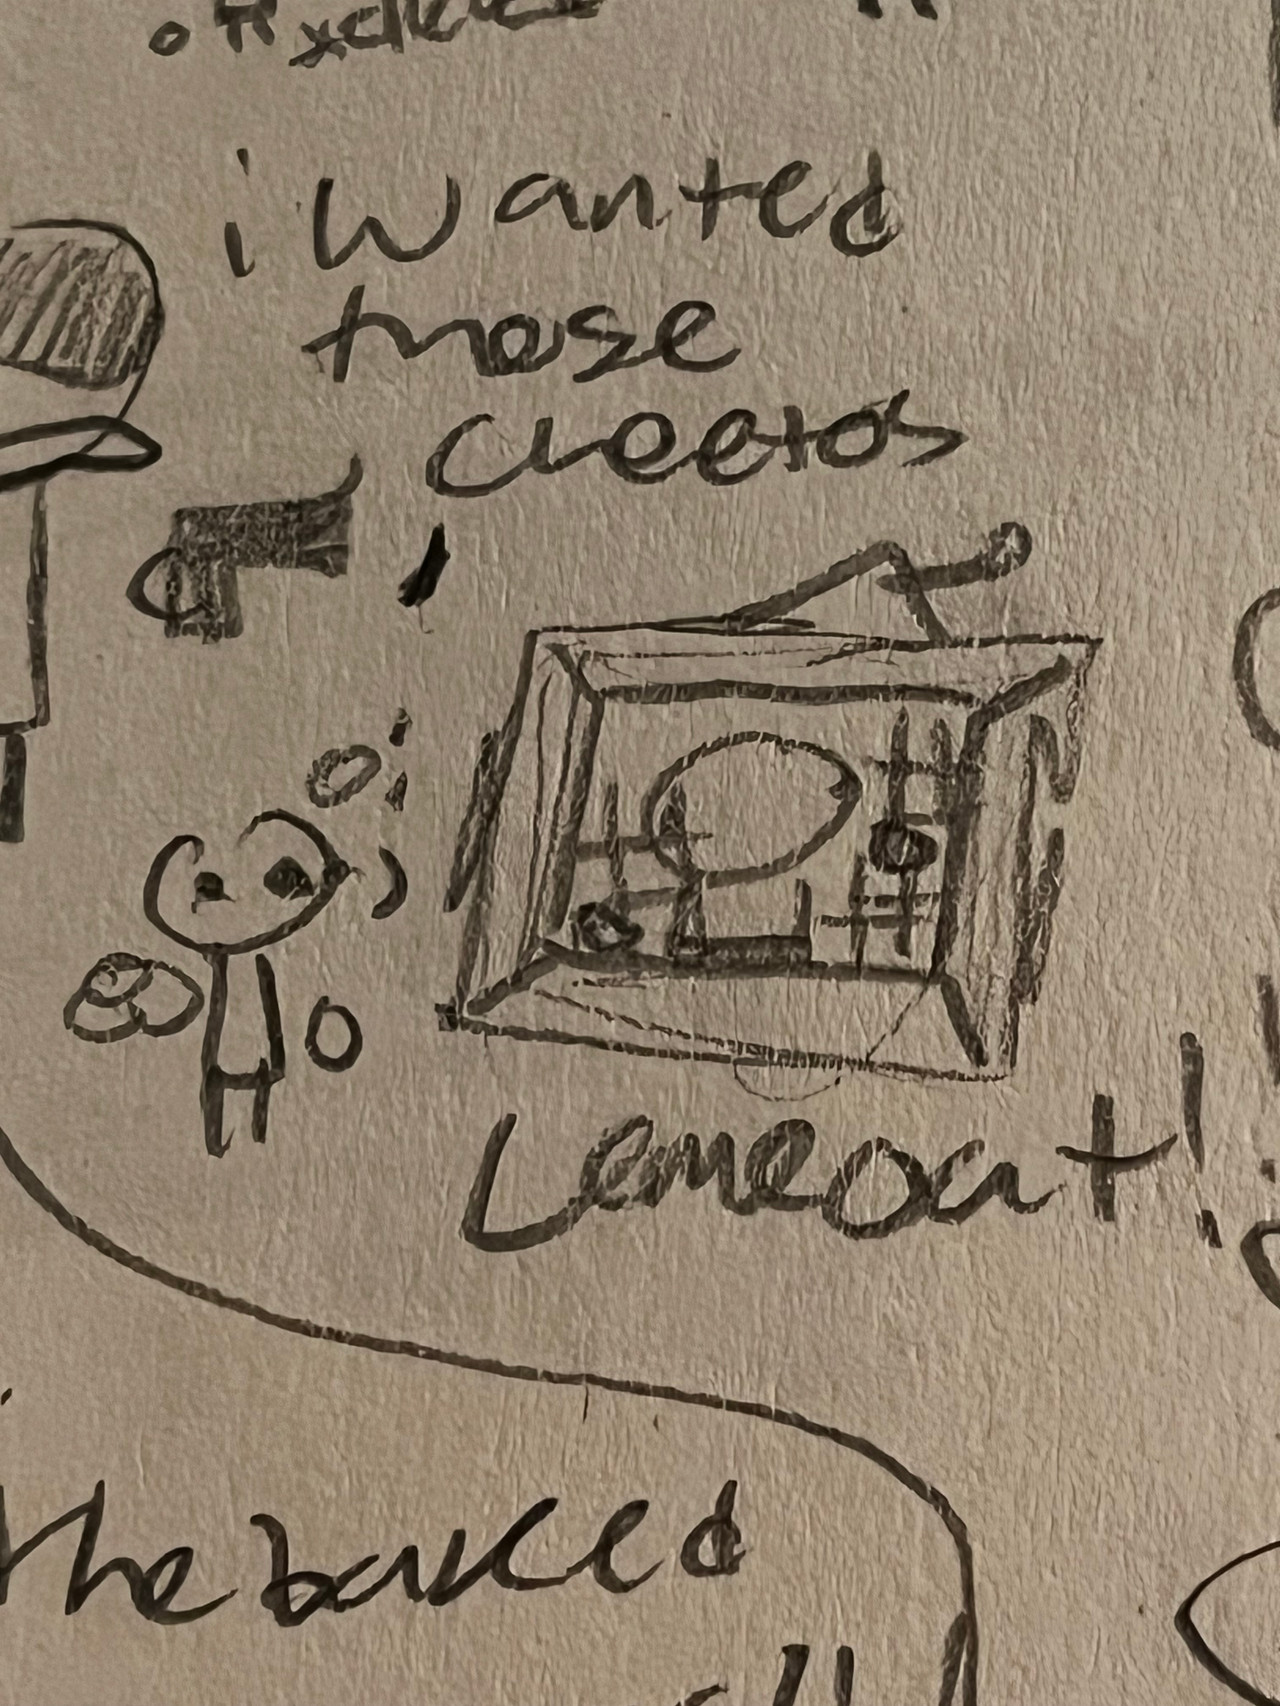 i wanted
those
cheetos
Lemeout!
the baked